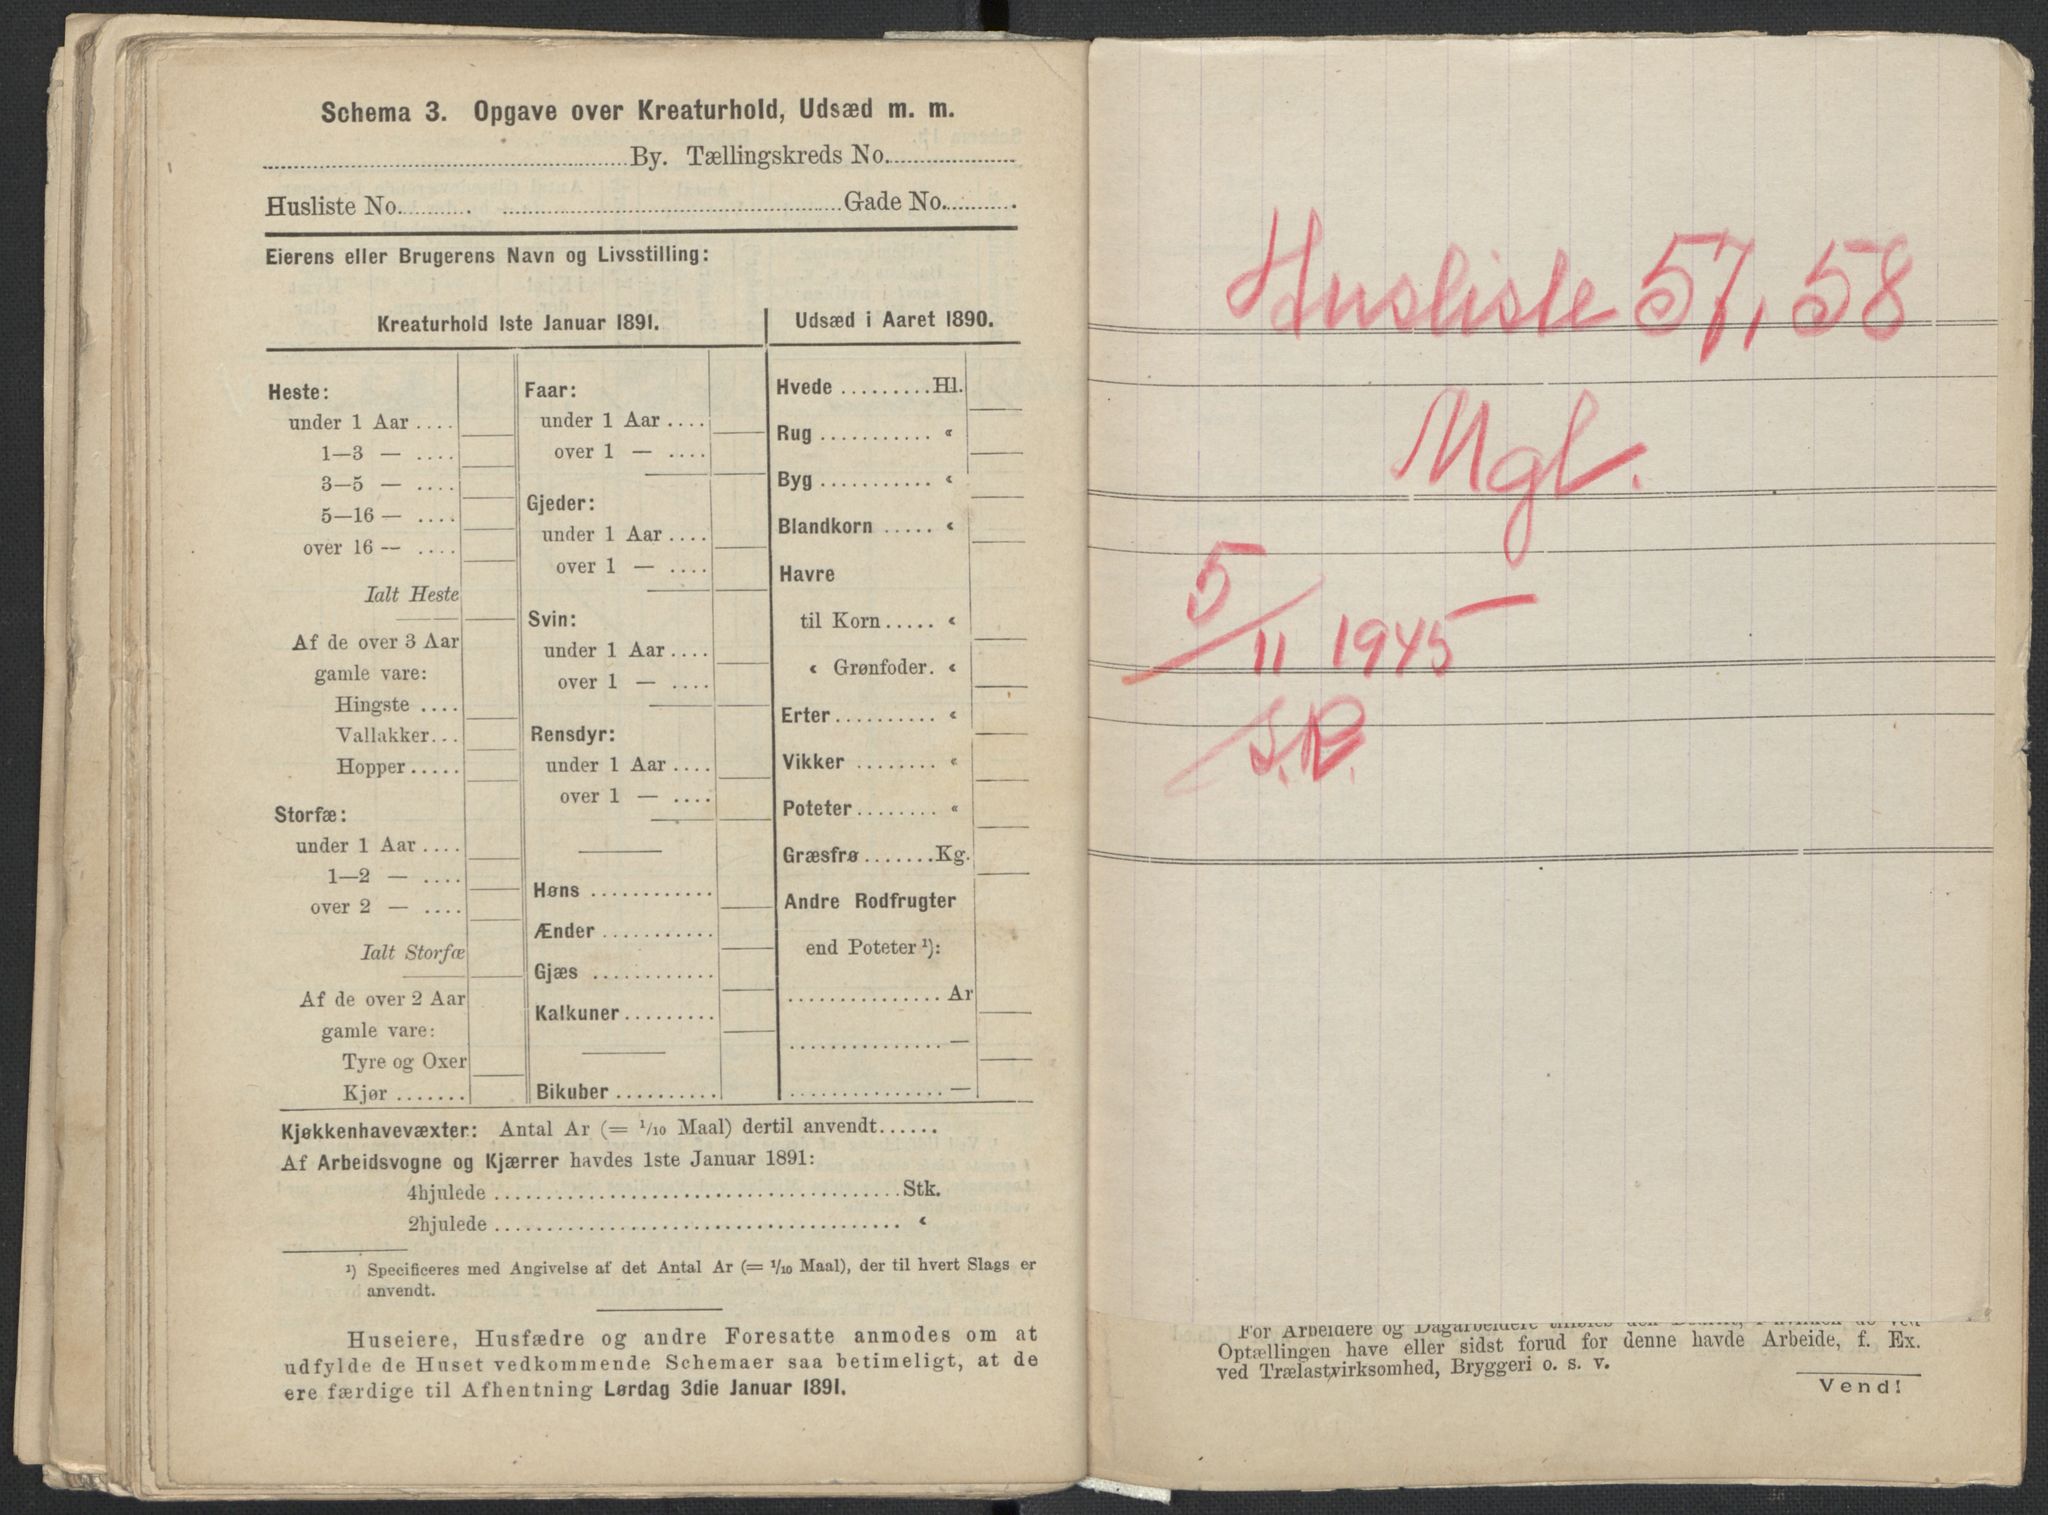 Schema 3. Opgave over Kreaturhold, Udsæd m. m.
By. Tællingskreds No.
Husliste No. Gade No.
Eierens eller Brugerens Navn og Livsstilling:
Kreaturhold 1ste Januar 1891.
Heste:
under 1 Aar ....
1—3 — ....
3—5 — ....
5—16 — ....
over 16 — ....
Ialt Heste
Af de over 3 Aar
gamle vare:
Hingste ....
Vallakker...
Hopper.....
Storfæ:
under 1 Aar ....
1—2 — ....
over 2 — ....
Ialt Storfæ
Af de over 2 Aar
gamle vare:
Tyre og Oxer
Kjør .......
Faar:
under 1 Aar ....
over 1 — ....
Gjeder:
under 1 Aar ....
over 1 — ....
Svin:
under 1 Aar ....
over 1 — ....
Rensdyr:
under 1 Aar ....
over 1 — ....
Høns ............
Ænder ...........
Gjæs ............
Kalkuner.........
Bikuber ..........
Udsæd i Aaret 1890.
Hvede .........Hl.
Rug ........... «
Byg ........... «
Blandkorn ..... «
Havre
til Korn..... «
« Grønfoder. «
Erter.......... «
Vikker ........ «
Poteter........ «
Græsfrø .......Kg.
Andre Rodfrugter
end Poteter ¹):
............... Ar
............... —
............... —
Kjøkkenhavevæxter: Antal Ar (= 1/10 Maal) dertil anvendt......
Af Arbeidsvogne og Kjærrer havdes 1ste Januar 1891:
4hjulede ........................................Stk.
2hjulede ........................................ «
¹) Specificeres med Angivelse af det Antal Ar (= 1/10 Maal), der til hvert Slags er
anvendt.
Huseiere, Husfædre og andre Foresatte anmodes om at
udfylde de Huset vedkommende Schemaer saa betimeligt, at de
ere færdige til Afhentning Lørdag 3die Januar 1891.
Husliste 57, 58
Mgl.
5/11 1945
For Arbeidere og Dagarbeidere tilføies den Bedrift, i hvilken de ved
Optællingen have eller sidst forud for denne havde Arbeide, f. Ex.
ved Trælastvirksomhed, Bryggeri o. s. v.
Vend!